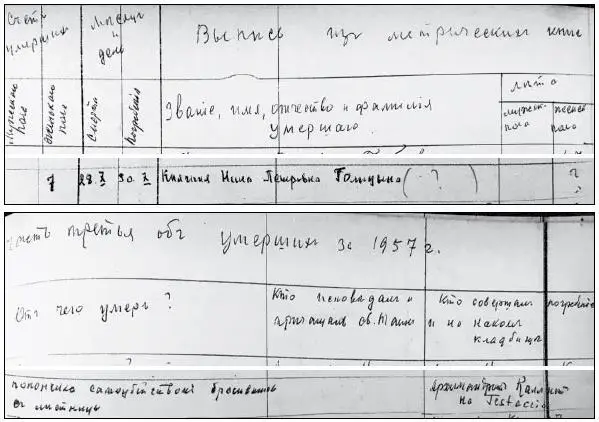 Счетъ умершихъ
Месяцъ и день
Выпись изъ метрических книг
Мужескаго пола
Женскаго пола
Смерти
Погребенія
Званіе, имя, отчество и фамилія умершаго.
лѣта
мужеск-пола
женск пола
7 28.X 30.X Княгиня Нина Петровна Голицына (?) ?
часть третья объ умершихъ за 1957 г.
Отъ чего умеръ?
Кто исповѣдалъ и
пріобщалъ св. Таинъ
Кто совершалъ погребеніе
и на какомъ
кладбищѣ
?
покончила самоубійствомъ бросившись
съ лѣстницы
Архимандритъ Каллистъ
на Testaccio